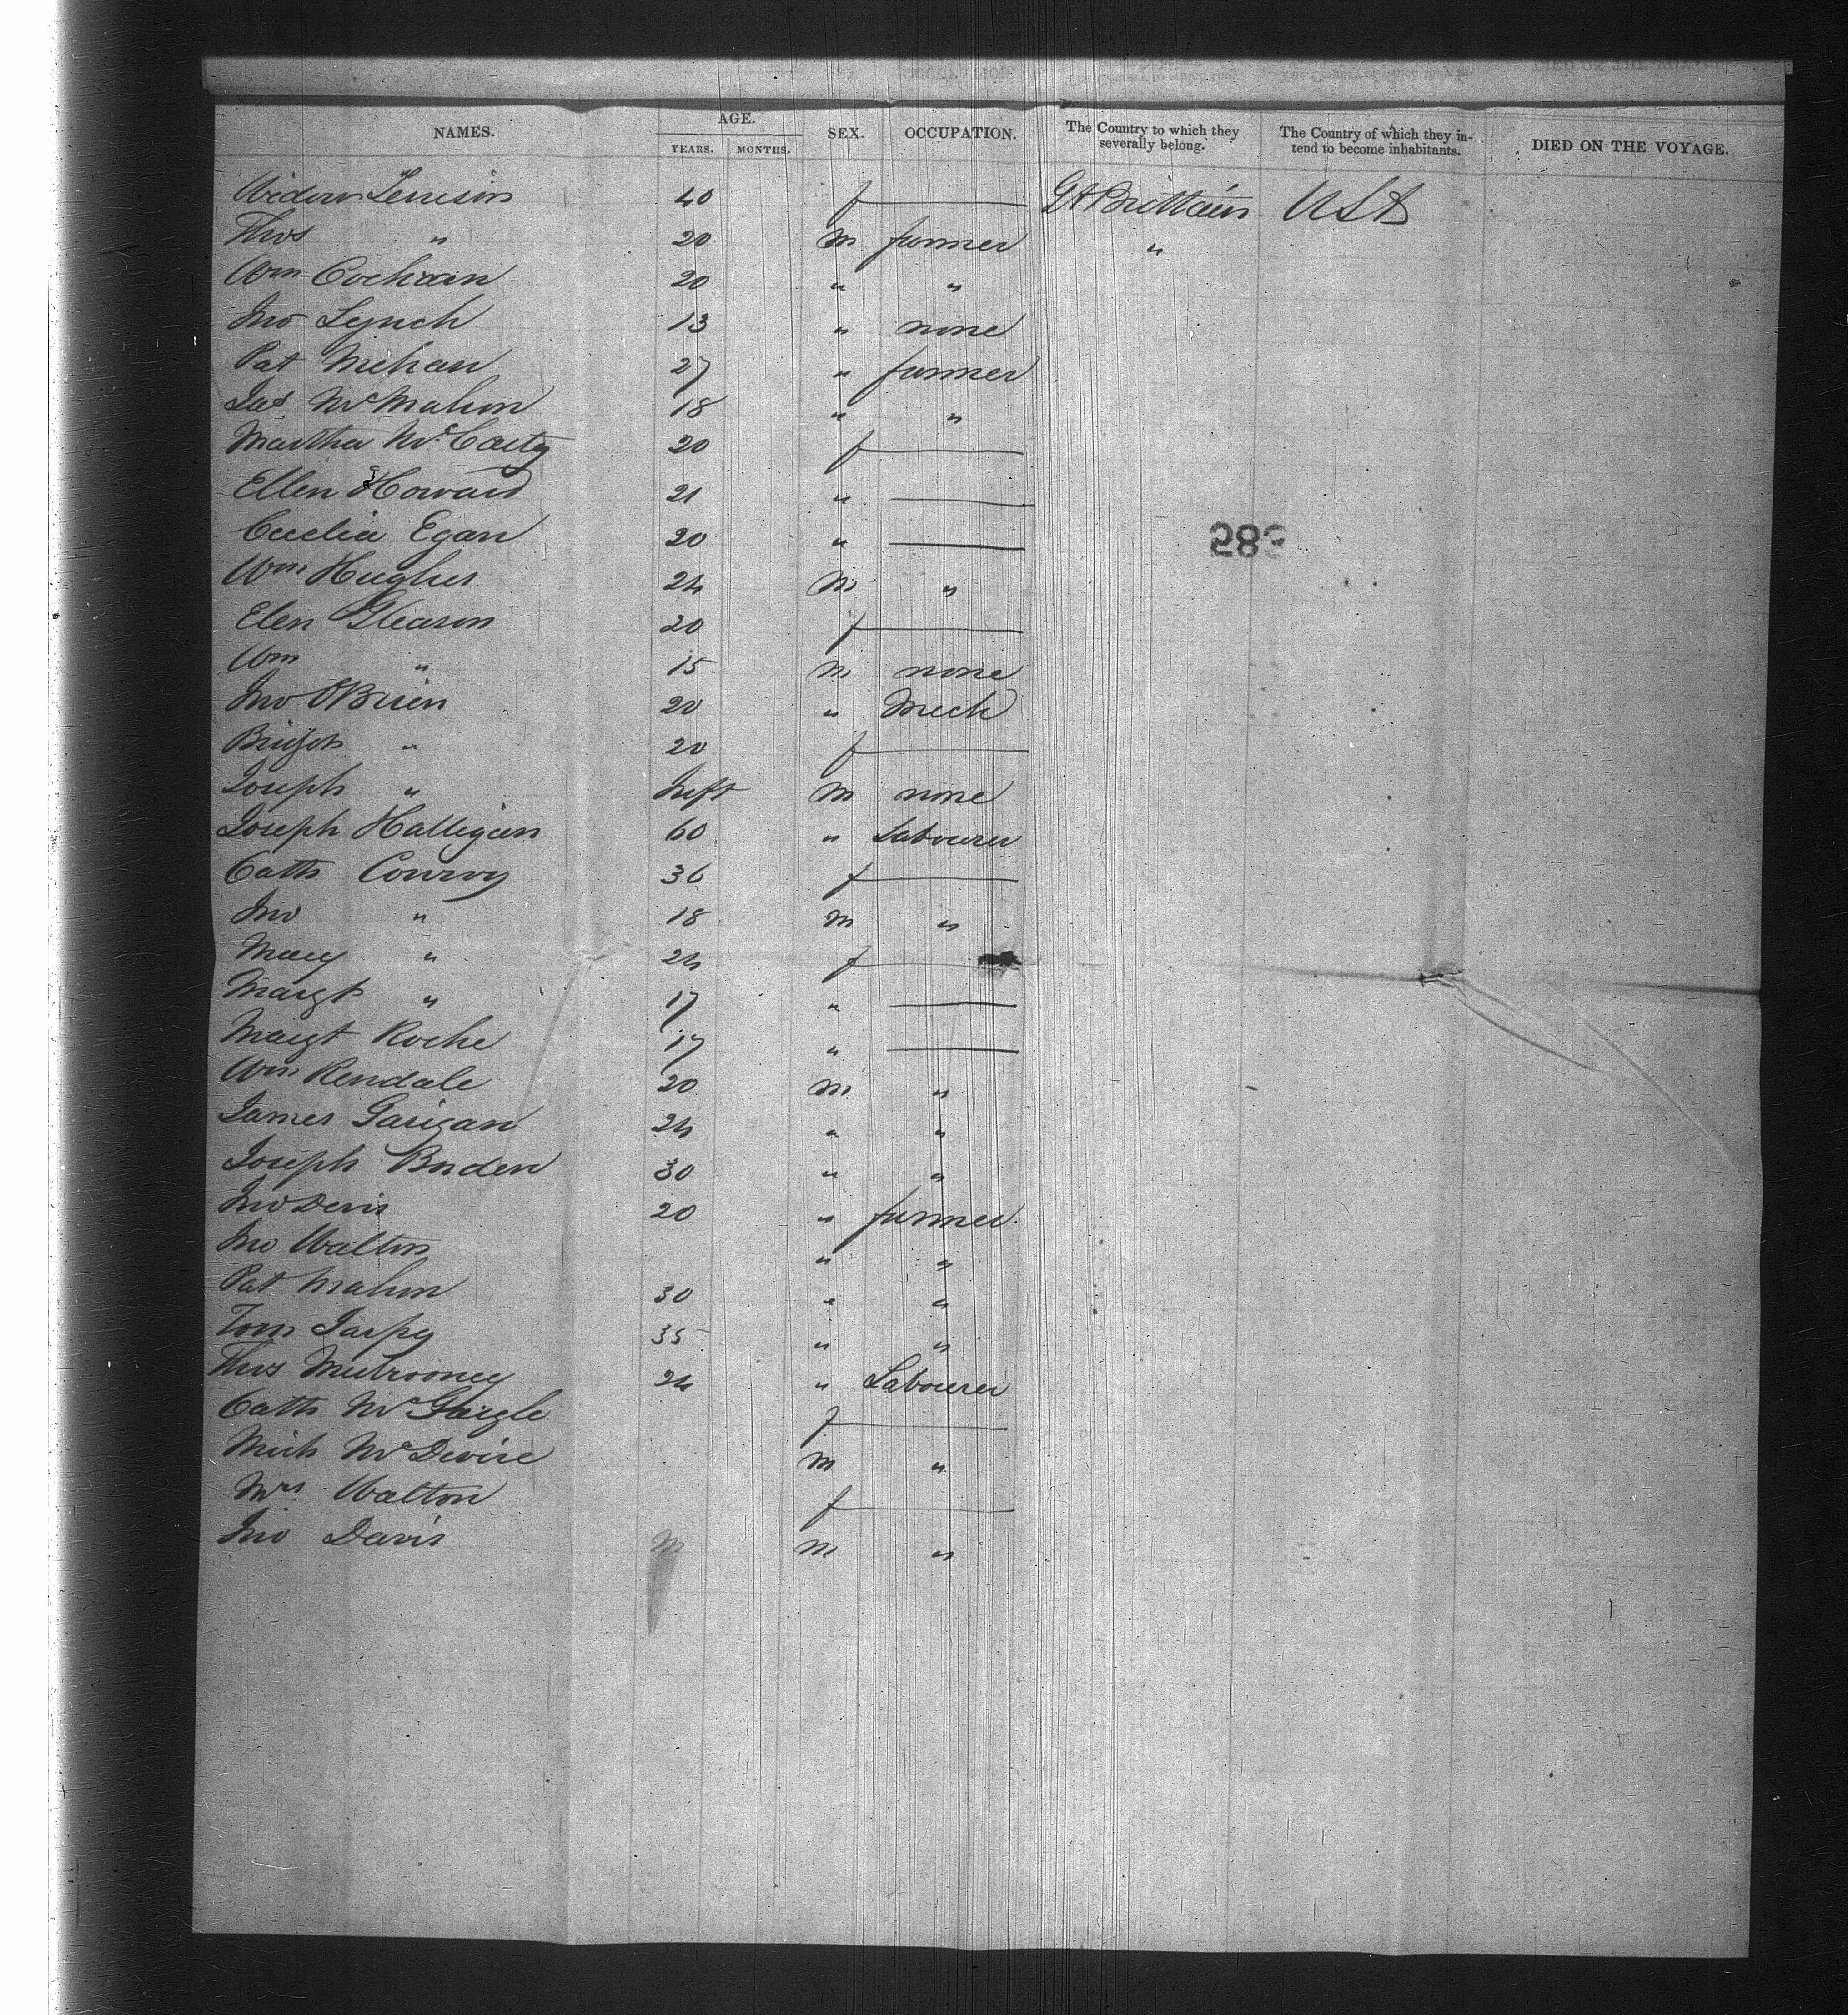 NAMES. AGE. SEX. OCCUPATION. The Country to which they severally belong. The Country of which they intend to become inhabitants. DIED ON THE VOYAGE.
YEARS. MONTHS.
Widow Tenison 40 f — Gt Brittain USA
Thos " 20 m farmer "
Wm Cochran 20 " "
Jno Lynch 13 " none
Pat Mehan 27 " farmer
Jas McMahon 18 " "
Martha McCarty 20 f —
Ellen Howard 21 " —
Cecelia Egan 20 " —
283
Wm Hughes 24 m "
Elen Gleason 20 f —
Wm " 15 m none
Jno OBrien 20 " Mech
Bridgt " 20 f —
Joseph " Inft m none
Joseph Halligan 60 " Labourer
Cath Conroy 36 f —
Jno " 18 m "
Mary " 24 f —
Margt " 17 " —
Margt Roche 17 " —
Wm Rendale 20 m "
James Garigan 24 " "
Joseph Boden 30 " "
Jno Devis 20 " farmer
Jno Walton " "
Pat Mahon 30 " "
Tom 35 " "
Thos Mulrooney 24 " Labourer
Cath McGargle f —
Mich McDevise m "
Mrs Walton f —
Jno Davis m m "